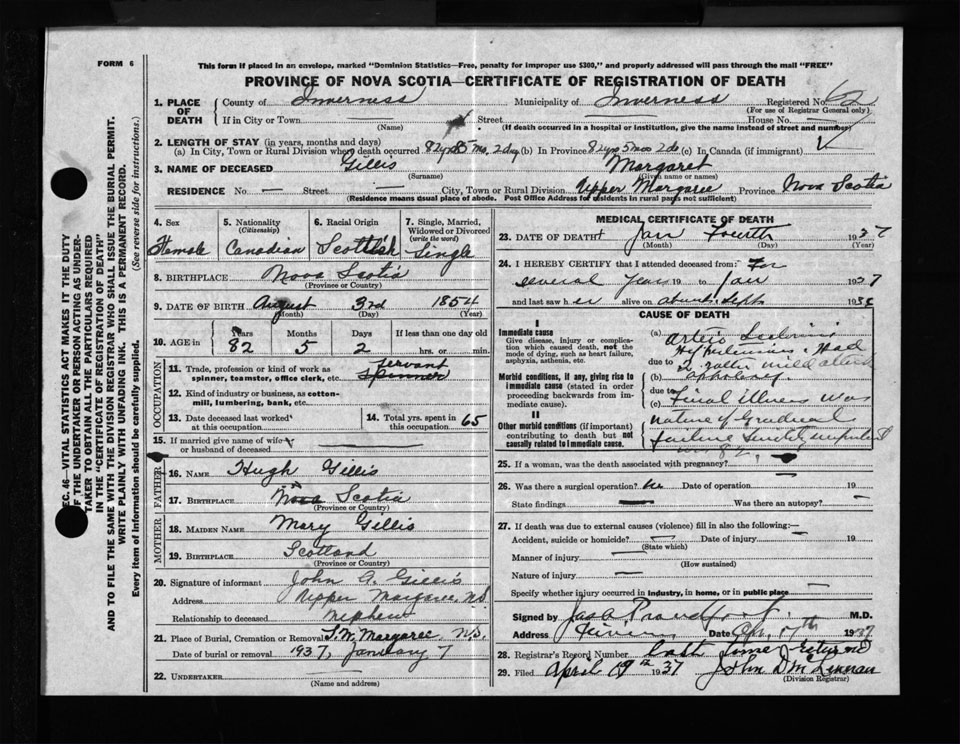 FORM 6
This form if placed in an envelope, marked "Dominion Statistics—Free, penalty for improper use $300," and properly addressed will pass through the mail "FREE"
PROVINCE OF NOVA SCOTIA—CERTIFICATE OF REGISTRATION OF DEATH
SEC. 46—VITAL STATISTICS ACT MAKES IT THE DUTY
OF THE UNDERTAKER OR PERSON ACTING AS UNDER-
TAKER TO OBTAIN ALL THE PARTICULARS REQUIRED
IN THE "CERTIFICATE OF REGISTRATION OF DEATH"
AND TO FILE THE SAME WITH THE DIVISION REGISTRAR WHO SHALL ISSUE THE BURIAL PERMIT.
WRITE PLAINLY WITH UNFADING INK. THIS IS A PERMANENT RECORD.
Every item of Information should be carefully supplied. (See reverse side for instructions.)
1. PLACE OF DEATH County of Inverness Municipality of Inverness Registered No. 62
(For use of Registrar General only)
If in City or Town — Street House No. —
(Name) (If death occurred in a hospital or institution, give the name instead of street and number)
2. LENGTH OF STAY (in years, months and days)
(a) In City, Town or Rural Division where death occurred 82 yrs 5 mo. 2 dy (b) In Province 82 yrs 5 mos 2 ds (c) In Canada (if immigrant)
3. NAME OF DECEASED Gillis Margaret
(Surname) (Given name or names)
RESIDENCE No. — Street — City, Town or Rural Division Upper Margaree Province Nova Scotia
(Residence means usual place of abode. Post Office Address for residents in rural parts not sufficient)
4. Sex Female
5. Nationality (Citizenship) Canadian
6. Racial Origin Scottish
7. Single, Married, Widowed or Divorced (write the word) Single
8. BIRTHPLACE Nova Scotia
(Province or Country)
9. DATE OF BIRTH August 3rd 1854
(Month) (Day) (Year)
10. AGE in Years 82 Months 5 Days 2 If less than one day old hrs. or min.
OCCUPATION
11. Trade, profession or kind of work as spinner, teamster, office clerk, etc. servant Spinner
12. Kind of industry or business, as cotton-mill, lumbering, bank, etc.
13. Date deceased last worked at this occupation
14. Total yrs. spent in this occupation 65
15. If married give name of wife or husband of deceased —
FATHER
16. NAME Hugh Gillis
17. BIRTHPLACE Nova Scotia
(Province or Country)
MOTHER
18. MAIDEN NAME Mary Gillis
19. BIRTHPLACE Scotland
(Province or Country)
20. Signature of informant John A. Gillis
Address Upper Margaree, N.S.
Relationship to deceased Nephew
21. Place of Burial, Cremation or Removal S.W. Margaree N.S.
Date of burial or removal 1937, January 7
22. UNDERTAKER —
(Name and address)
MEDICAL CERTIFICATE OF DEATH
23. DATE OF DEATH Jan Fourth 1937
(Month) (Day) (Year)
24. I HEREBY CERTIFY that I attended deceased from: For
several years 19 to Jan 1937
and last saw her alive on about Sept 1936
CAUSE OF DEATH
I
Immediate cause
Give disease, injury or complication which caused death, not the mode of dying, such as heart failure, asphyxia, asthenia, etc.
Morbid conditions, if any, giving rise to immediate cause (stated in order proceeding backwards from immediate cause).
II
Other morbid conditions (if important) contributing to death but not causally related to immediate cause.
(a) Arterio
Hypertension. Had
due to a rather mild attack
(b) apoplexy.
due to
(c) Final illness was
nature of gradual
failure
25. If a woman, was the death associated with pregnancy? —
26. Was there a surgical operation? no Date of operation — 19
State findings — Was there an autopsy? —
27. If death was due to external causes (violence) fill in also the following:—
Accident, suicide or homicide? — Date of injury — 19
(State which)
Manner of injury —
(How sustained)
Nature of injury —
Specify whether injury occurred in industry, in home, or in public place —
Signed by Jas A Proudfoot M.D.
Address Date Apr. 17th 1937
28. Registrar's Record Number last time
29. Filed April 19th 1937 John D McLennan
(Division Registrar)